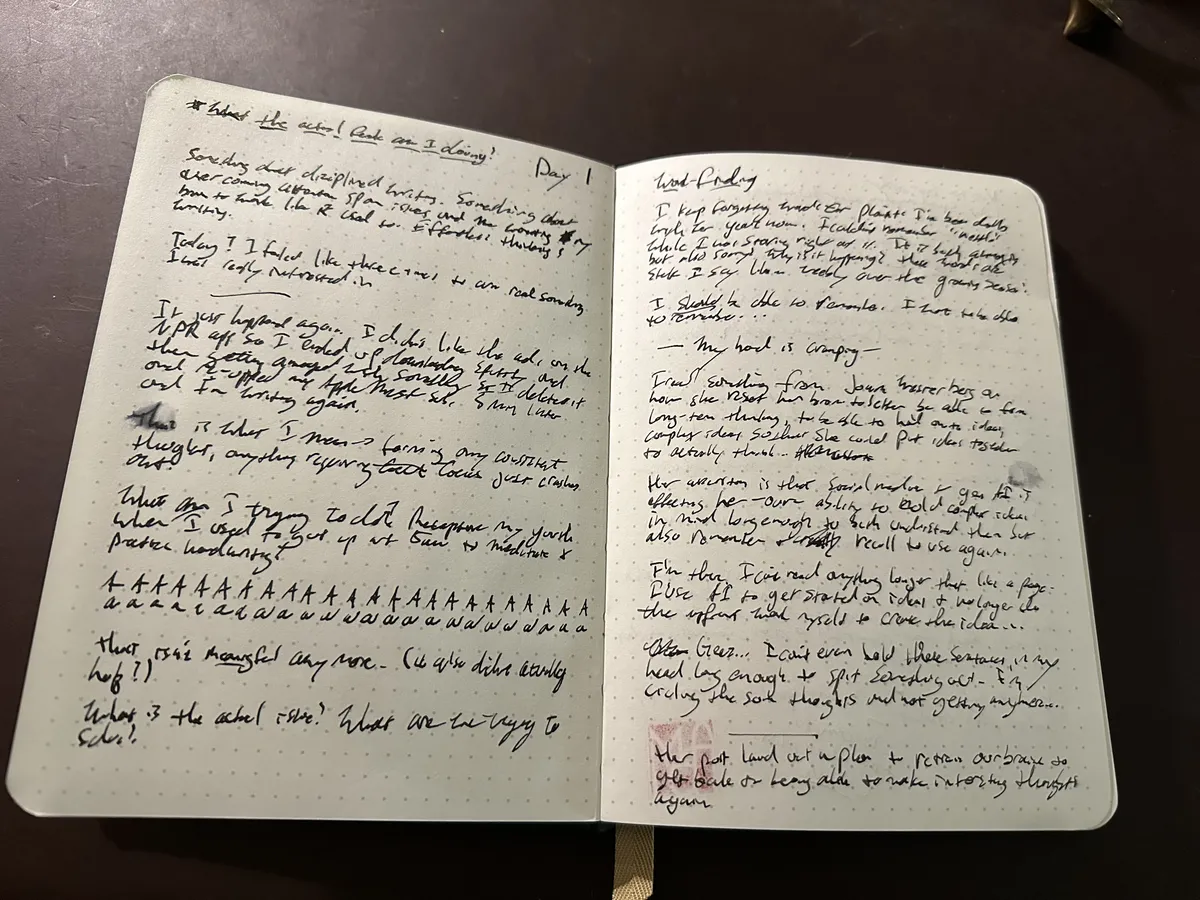 # What the actual fuck am I doing?
Day 1
Something about disciplined writing. Something about
overcoming attention span issues and me wanting my
brain to work like it used to. Effortless thinking &
writing.
Today? I failed like three times to even read something
I was really interested in
It just happened again. I didn't like the ads on the
NPR app so I ended up downloading Spotify and
then getting annoyed with so I deleted it
and re-upped my Apple Music sub. 5 min later
and I'm writing again.
This is what I mean → forming any consistent
thoughts, anything requiring focus just crashes
out
What am I trying to do? Recapture my youth
when I used to get up at 5am to meditate &
practice handwriting?
A A A A A A A A A A A A A A A A A A A A
a a a a a a a a a a a a a a a a a a a
that isn't meaningful anymore – (it also didn't actually
help?)
What is the actual issue? What are we trying to
solve?
Word-finding
I keep forgetting words for plants I've been dealing
with for years now. I couldn't remember
while I was staring right at it. It is
but also sorry? Why is it happening? These words are
stuff I say like weekly over the growing season!
I should be able to remember. I want to be able
to remember...
— My hand is cramping —
I read something from on
how she reset her brain to better be able to form
long-term thinking, to be able to hold onto ideas,
complex ideas so that she could put ideas together
to actually think...
Her assertion is that social media & gen AI is
affecting her – our ability to hold complex ideas
in mind long enough to both understand them but
also remember & recall to use again.
I'm there. I can't read anything longer than like a page.
I use AI to get started on ideas & no longer do
the upfront work myself to create the idea...
Geez... I can't even hold these sentences in my
head long enough to spit something out – I'm
circling the same thoughts and not getting anymore.
Her post laid out a plan to retrain our brains to
get back to being able to make interesting thoughts
again